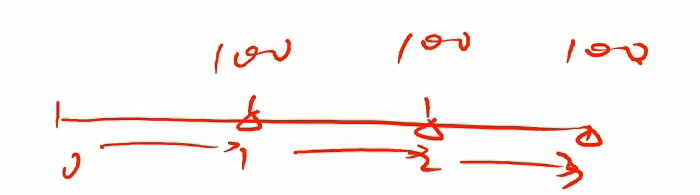 100 100 100
0 1 2 3